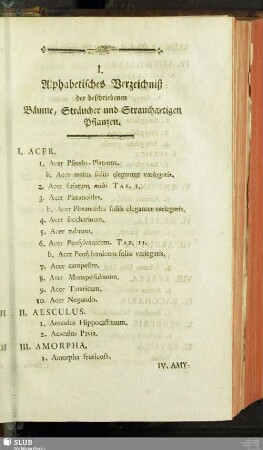 I.
Alphabetisches Verzeichniß
der beschriebenen
Bäume, Sträucher und Strauchartigen
Pflanzen.
I. ACER.
1. Acer Pseudo-Platanus.
b. Acer majus foliis eleganter variegatis.
2. Acer striatum, mihi TAB. I.
3. Acer Platanoides.
b. Acer Platanoides foliis eleganter variegatis.
4. Acer saccharinum.
5. Acer rubrum.
6. Acer Pensylvanicum. TAB. II.
b. Acer Pensylvanicum foliis variegatis.
7. Acer campestre.
8. Acer Monspessulanum.
9. Acer Tataricum.
10. Acer Negundo.
II. AESCULUS.
1. Aesculus Hippocastanum.
2. Aesculus Pavia.
III. AMORPHA.
1. Amorpha fruticosa.
IV. AMY-
SLUB